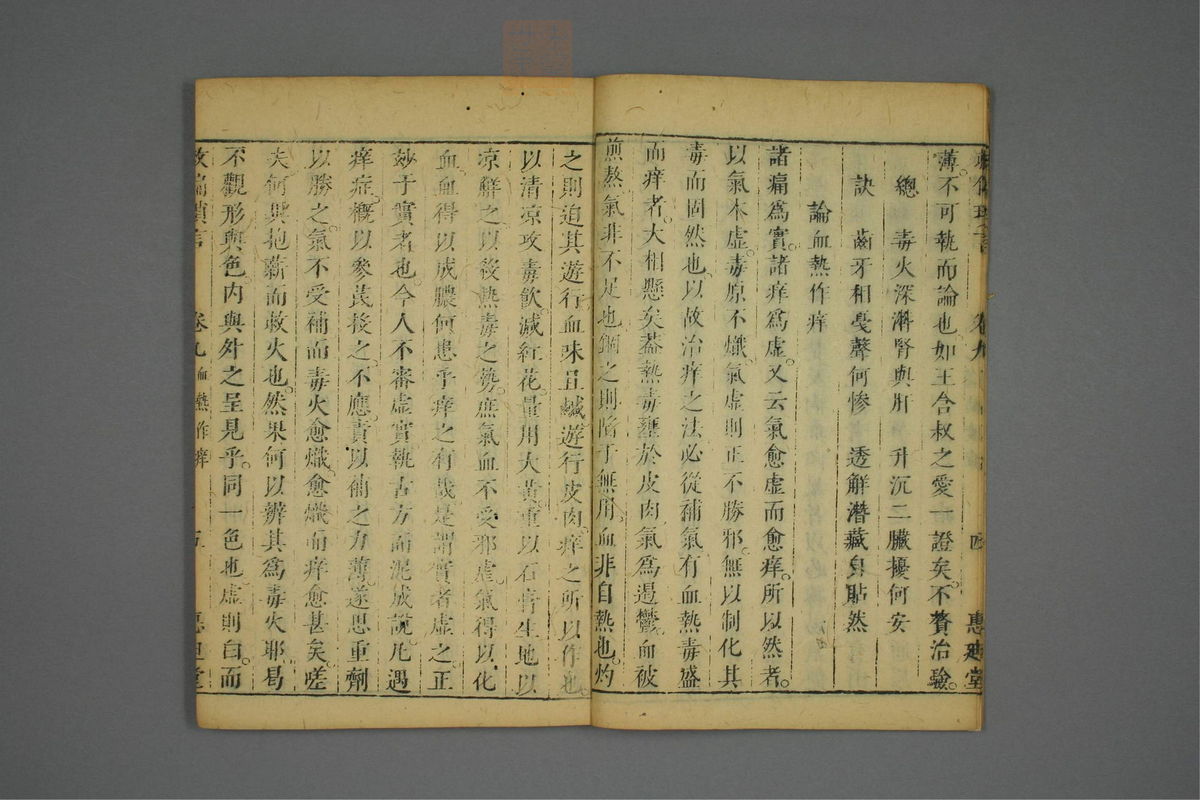 薄。不可執而論也。如王合叔之愛一證矣。不贅治驗。
總　毒火深潛腎與肝　升沉二臟擾何安
訣　齒牙相戞聲何慘　透解潛藏身貼然
論血熱作痒
諸痛爲實。諸痒爲虛。又云氣愈虛而愈痒。所以然者。
以氣本虛。毒原不熾。氣虛則正不勝邪。無以制化其
毒而固然也。以故治痒之法必從補氣有血熱毒盛
而痒者。大相懸矣。蓋熱毒壅於皮肉。氣爲遏鬱。血被
煎熬氣非不足也錮之則陷于無用。血非自熱也。灼
之則迫其遊行血味且鹹遊行皮肉。痒之所以作也。
以清凉攻毒飲。減紅花。量用大黃重以石膏生地以
凉解之。以後熱毒之勢。庶氣血不受邪虐。氣得以化
血。血得以成膿何患乎痒之有哉。是謂實者虛之。正
妙于實者也。今人不審虛實執古方而泥成說。凡遇
痒症。概以參芪投之。不應。責以補之力薄。遂思重劑
以勝之。氣不受補而毒火愈熾。愈熾而痒愈甚矣。嗟
夫何異抱薪而救火也。然果何以辨其爲毒火耶。曷
不觀形與色。内與外之呈見乎。同一色也。虛則白。而
救偏瑣言　卷九血熱作痒　十五　惠迪堂